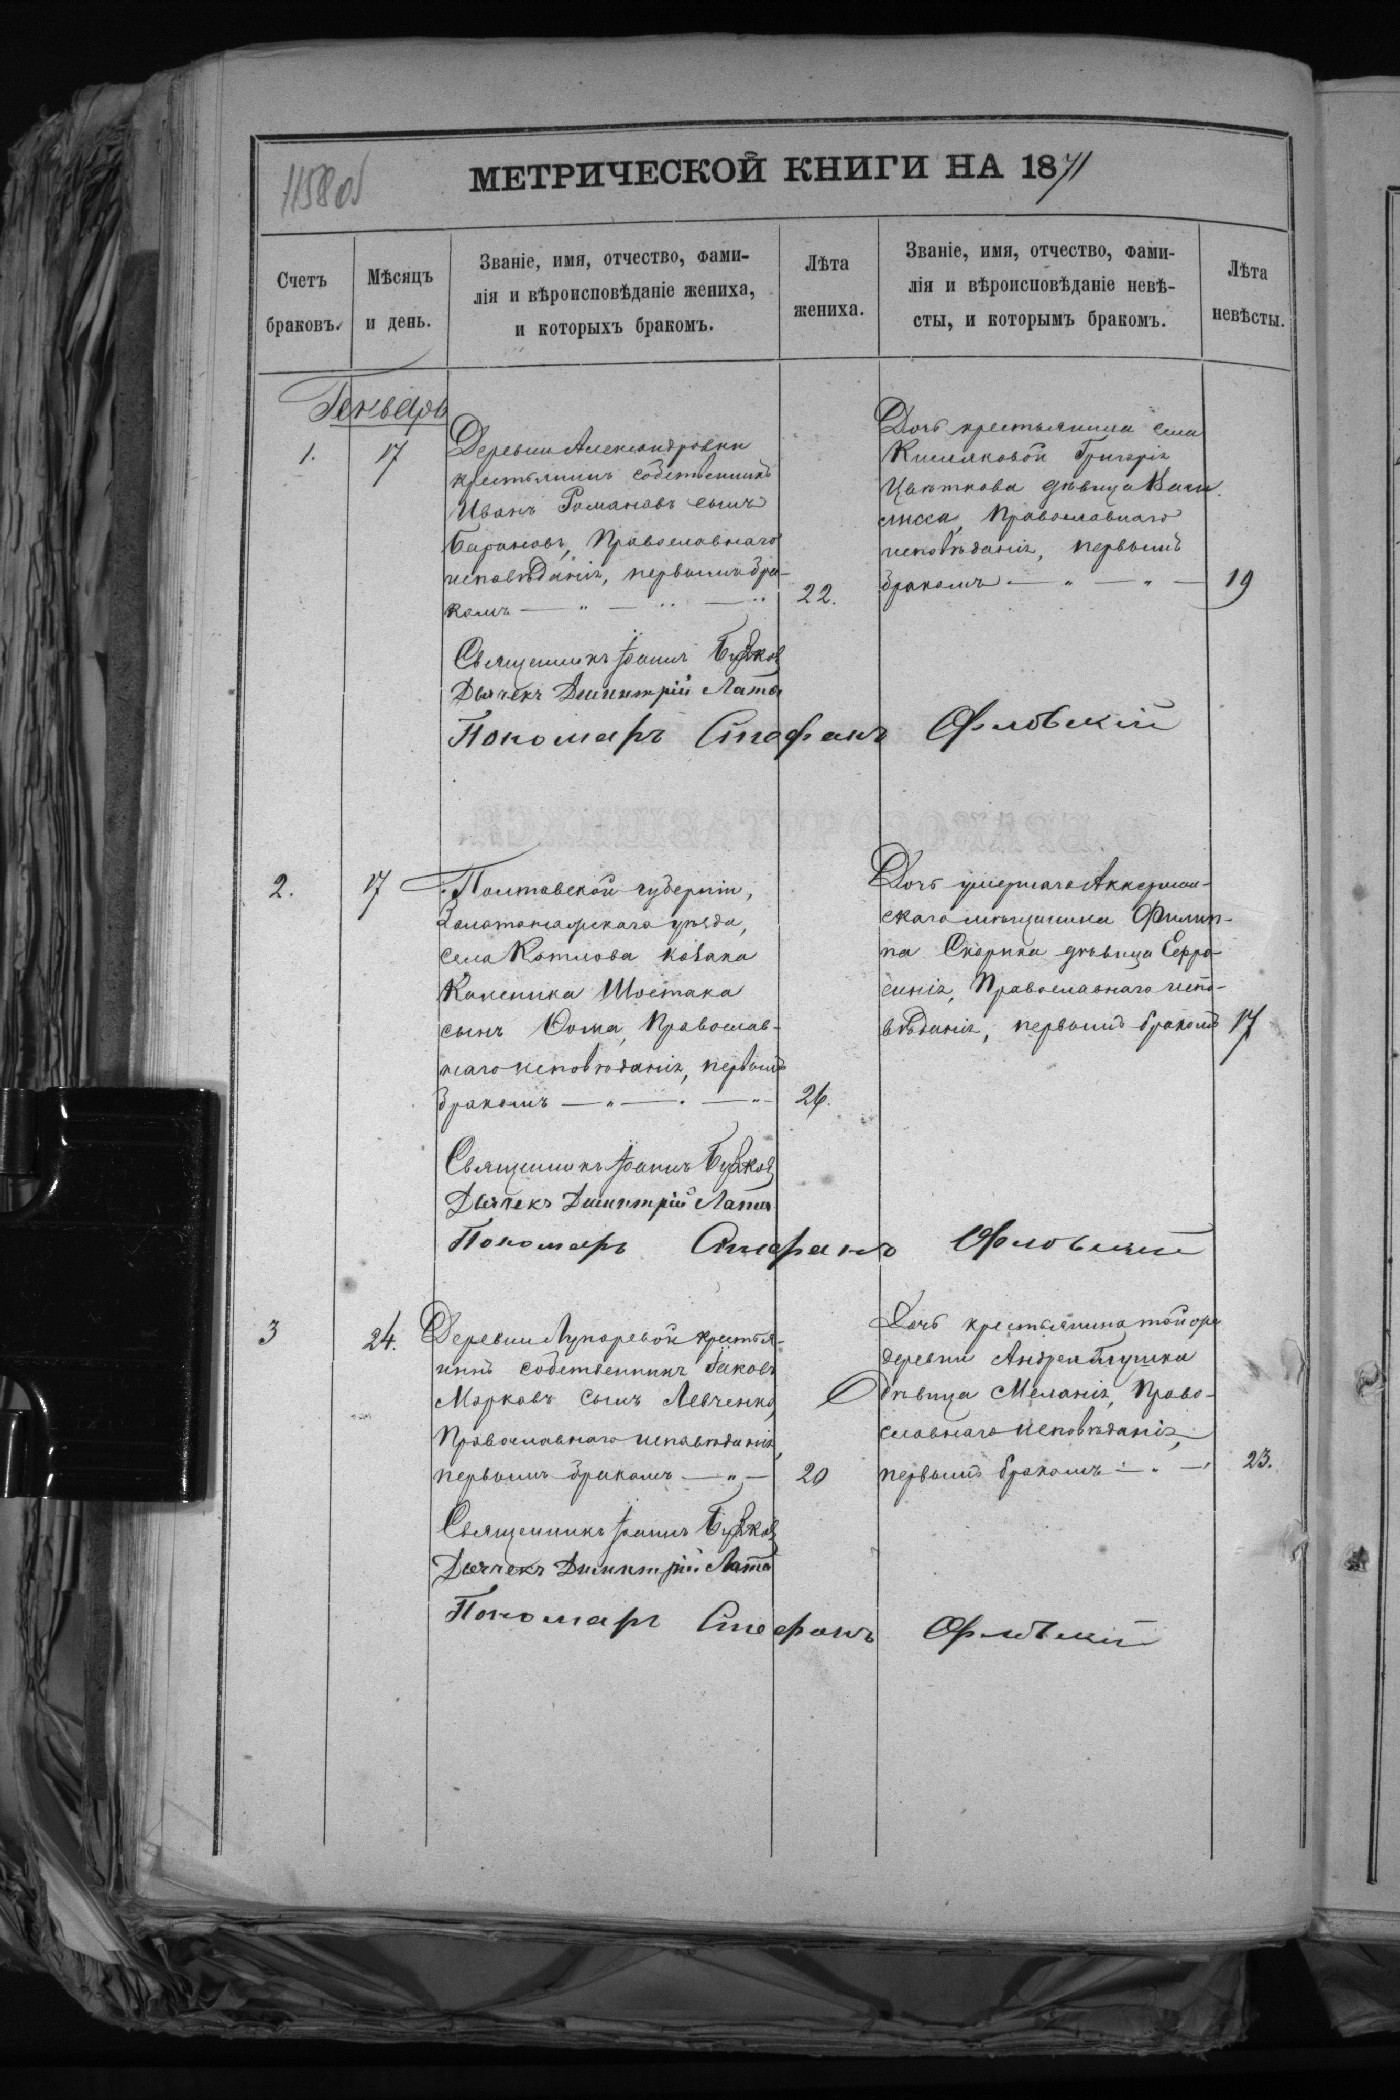 1158 об
МЕТРИЧЕСКОЙ КНИГИ НА 1871
Счетъ браковъ.
Мѣсяцъ и день.
Званіе, имя, отчество, фами-
лія и вѣроисповѣданіе жениха,
и которыхъ бракомъ.
Лѣта жениха.
Званіе, имя, отчество, фами-
лія и вѣроисповѣданіе невѣ-
сты, и которымъ бракомъ.
Лѣта невѣсты.
Генварь
1.
17
Деревни Александровки
крестьянинъ собственникъ
Иванъ Романовъ сынъ
Барановъ, Православнаго
исповѣданія, первымъ бра-
комъ
22.
Дочь крестьянина села
Кисляковой Григорія
Цвѣткова дѣвица Васи-
лисса, Православнаго
исповѣданія, первымъ
бракомъ
19
Священникъ Іоаннъ
Дьячекъ Димитрій Лата
Пономарь Стефанъ Орловскій
2.
17
Полтавской губерніи,
Золотоношскаго уѣзда,
села Котлова козака
Шостака
сынъ Ѳома, Православ-
наго исповѣданія, первымъ
бракомъ
26.
Дочь умершаго Аккерман-
скаго мѣщанина Филип-
па Скорика дѣвица Евфро-
синія, Православнаго испо-
вѣданія, первымъ бракомъ
17
Священникъ Іоаннъ
Дьячекъ Димитрій Лата
Пономарь Стефанъ Орловскій
3
24.
Деревни Лупаревой крестья-
нинъ собственникъ Іаковъ
Марковъ сынъ Левченко,
Православнаго исповѣданія,
первымъ бракомъ
20
Дочь крестьянина той же
деревни Андрея
дѣвица Меланія, Право-
славнаго исповѣданія,
первымъ бракомъ
23.
Священникъ Іоаннъ
Дьячекъ Димитрій Лата
Пономарь Стефанъ Орловскій